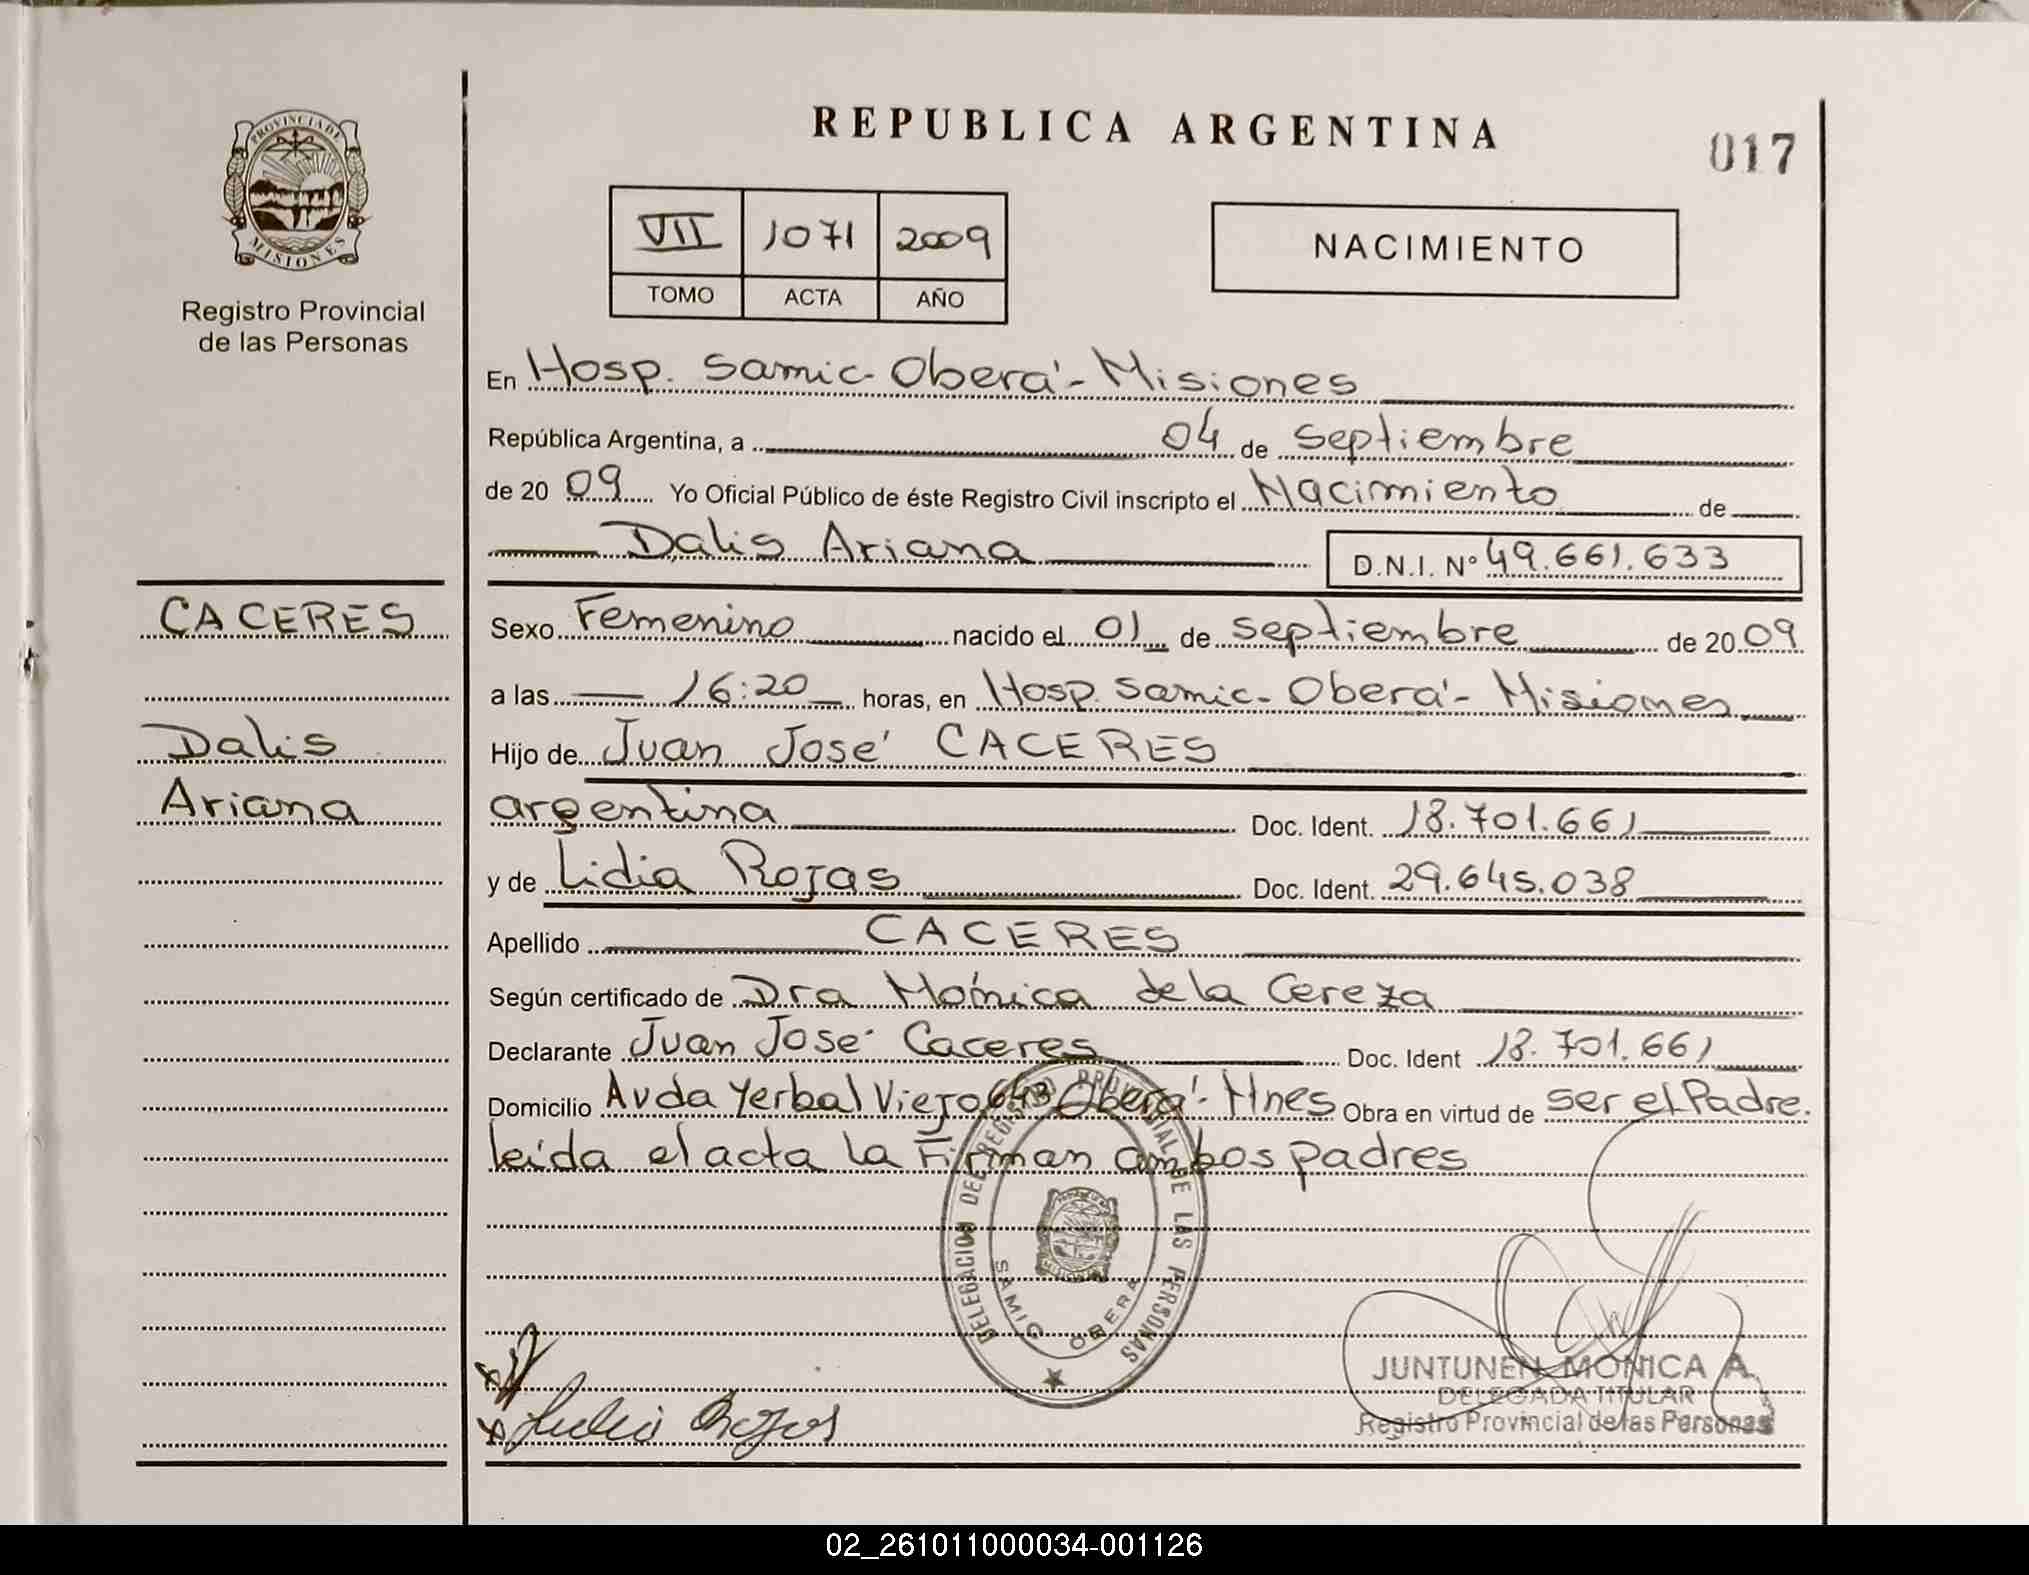 REPUBLICA ARGENTINA
017
PROVINCIA DE
MISIONES
Registro Provincial
de las Personas
VII 1071 2009
TOMO ACTA AÑO
NACIMIENTO
En Hosp. Samic - Oberá - Misiones
República Argentina, a 04 de Septiembre
de 20 09 Yo Oficial Público de éste Registro Civil inscripto el Nacimiento de
Dalis Ariana D.N.I. Nº 49.661.633
CACERES
Dalis
Ariana
Sexo Femenino nacido el 01 de Septiembre de 20 09
a las 16:20 horas, en Hosp. Samic - Oberá - Misiones
Hijo de Juan José CACERES
argentina Doc. Ident. 18.701.661
y de Lidia Rojas Doc. Ident. 29.645.038
Apellido CACERES
Según certificado de Dra Mónica de la Cereza
Declarante Juan José Caceres Doc. Ident 18.701.661
Domicilio Avda Yerbal Viejo 643 Oberá - Mnes Obra en virtud de ser el Padre.
leída el acta la Firman ambos padres
DELEGACION DEL REGISTRO PROVINCIAL DE LAS PERSONAS
SAMIC OBERA
JUNTUNEN MONICA A.
DELEGADA TITULAR
Registro Provincial de las Personas
Lidia Rojas
02_261011000034-001126